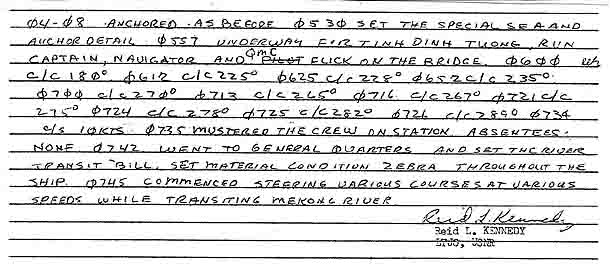 Ø4-Ø8 ANCHORED AS BEFORE Ø53Ø SET THE SPECIAL SEA AND
ANCHOR DETAIL Ø557 UNDERWAY FOR TINH DINH TUONG, RUN
CAPTAIN, NAVIGATOR AND QMC FLICK ON THE BRIDGE. Ø6ØØ
C/C 18Ø° Ø612 C/C 225° Ø625 C/C 228° Ø652 C/C 235°
Ø7ØØ C/C 27Ø° Ø713 C/C 265° Ø716 C/C 267° Ø721 C/C
275° Ø724 C/C 278° Ø725 C/C 282° Ø726 C/C 289° Ø734
C/S 1ØKTS Ø735 MUSTERED THE CREW ON STATION. ABSENTEES:
NONE Ø742 WENT TO GENERAL QUARTERS AND SET THE RIVER
TRANSIT BILL. SET MATERIAL CONDITION ZEBRA THROUGHOUT THE
SHIP. Ø745 COMMENCED STEERING VARIOUS COURSES AT VARIOUS
SPEEDS WHILE TRANSITING MEKONG RIVER.
Reid L. Kennedy
Reid L. KENNEDY
LTJG, USNR